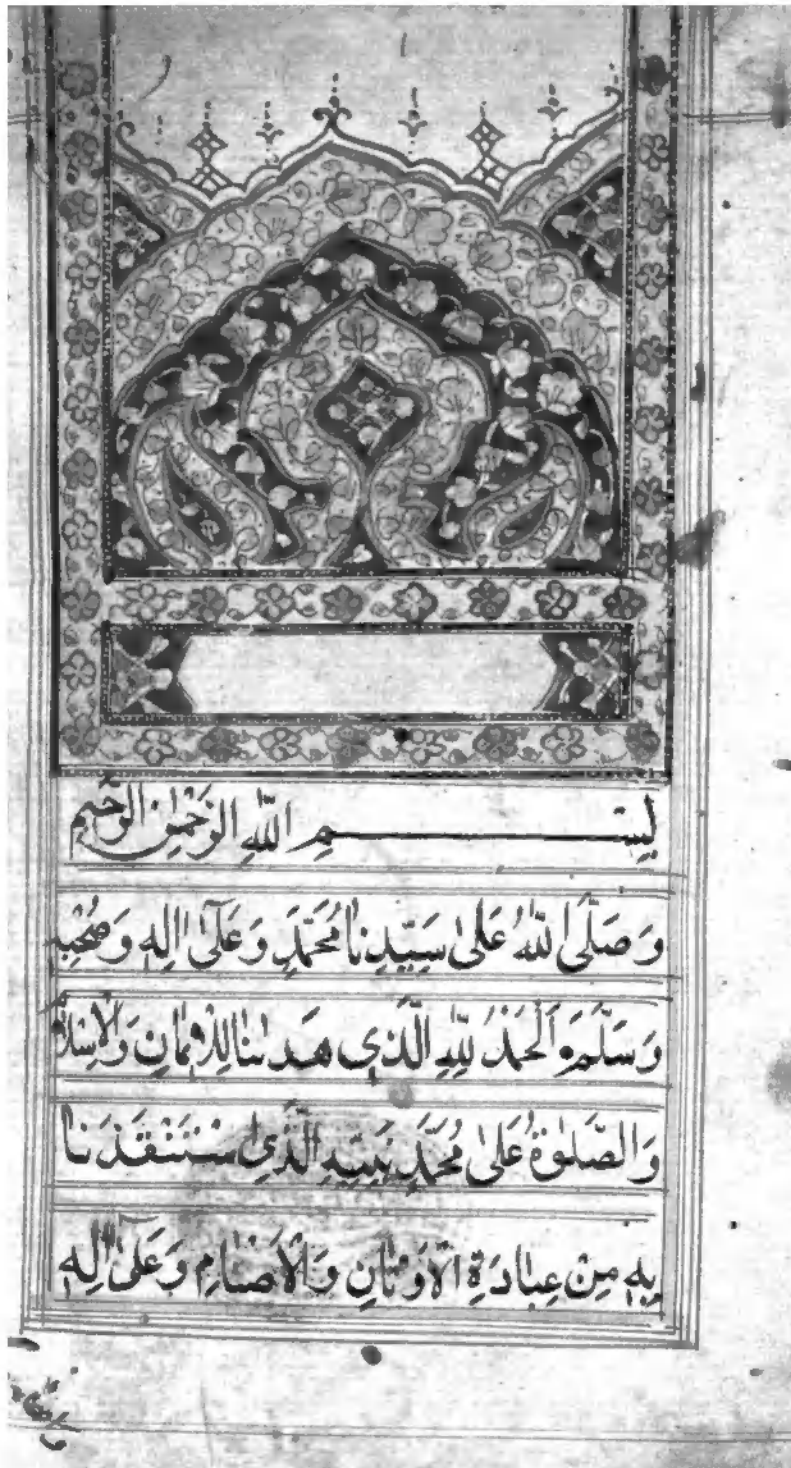 بِسْمِ اللّٰهِ الرَّحْمٰنِ الرَّحِيْمِ
وَصَلَّى اللّٰهُ عَلٰى سَيِّدِنَا مُحَمَّدٍ وَعَلٰٓى اٰلِهٖ وَصَحْبِهٖ
وَسَلَّمَ اَلْحَمْدُ لِلّٰهِ الَّذِي هَدٰىنَا لِلْاِيْمَانِ وَالْاِسْلَامِ
وَالصَّلٰوةُ عَلٰى مُحَمَّدٍ نَبِيِّهِ الَّذِي اسْتَنْقَذَنَا
بِهٖ مِنْ عِبَادَةِ الْاَوْثَانِ وَالْاَصْنَامِ وَعَلٰٓى اٰلِهٖ